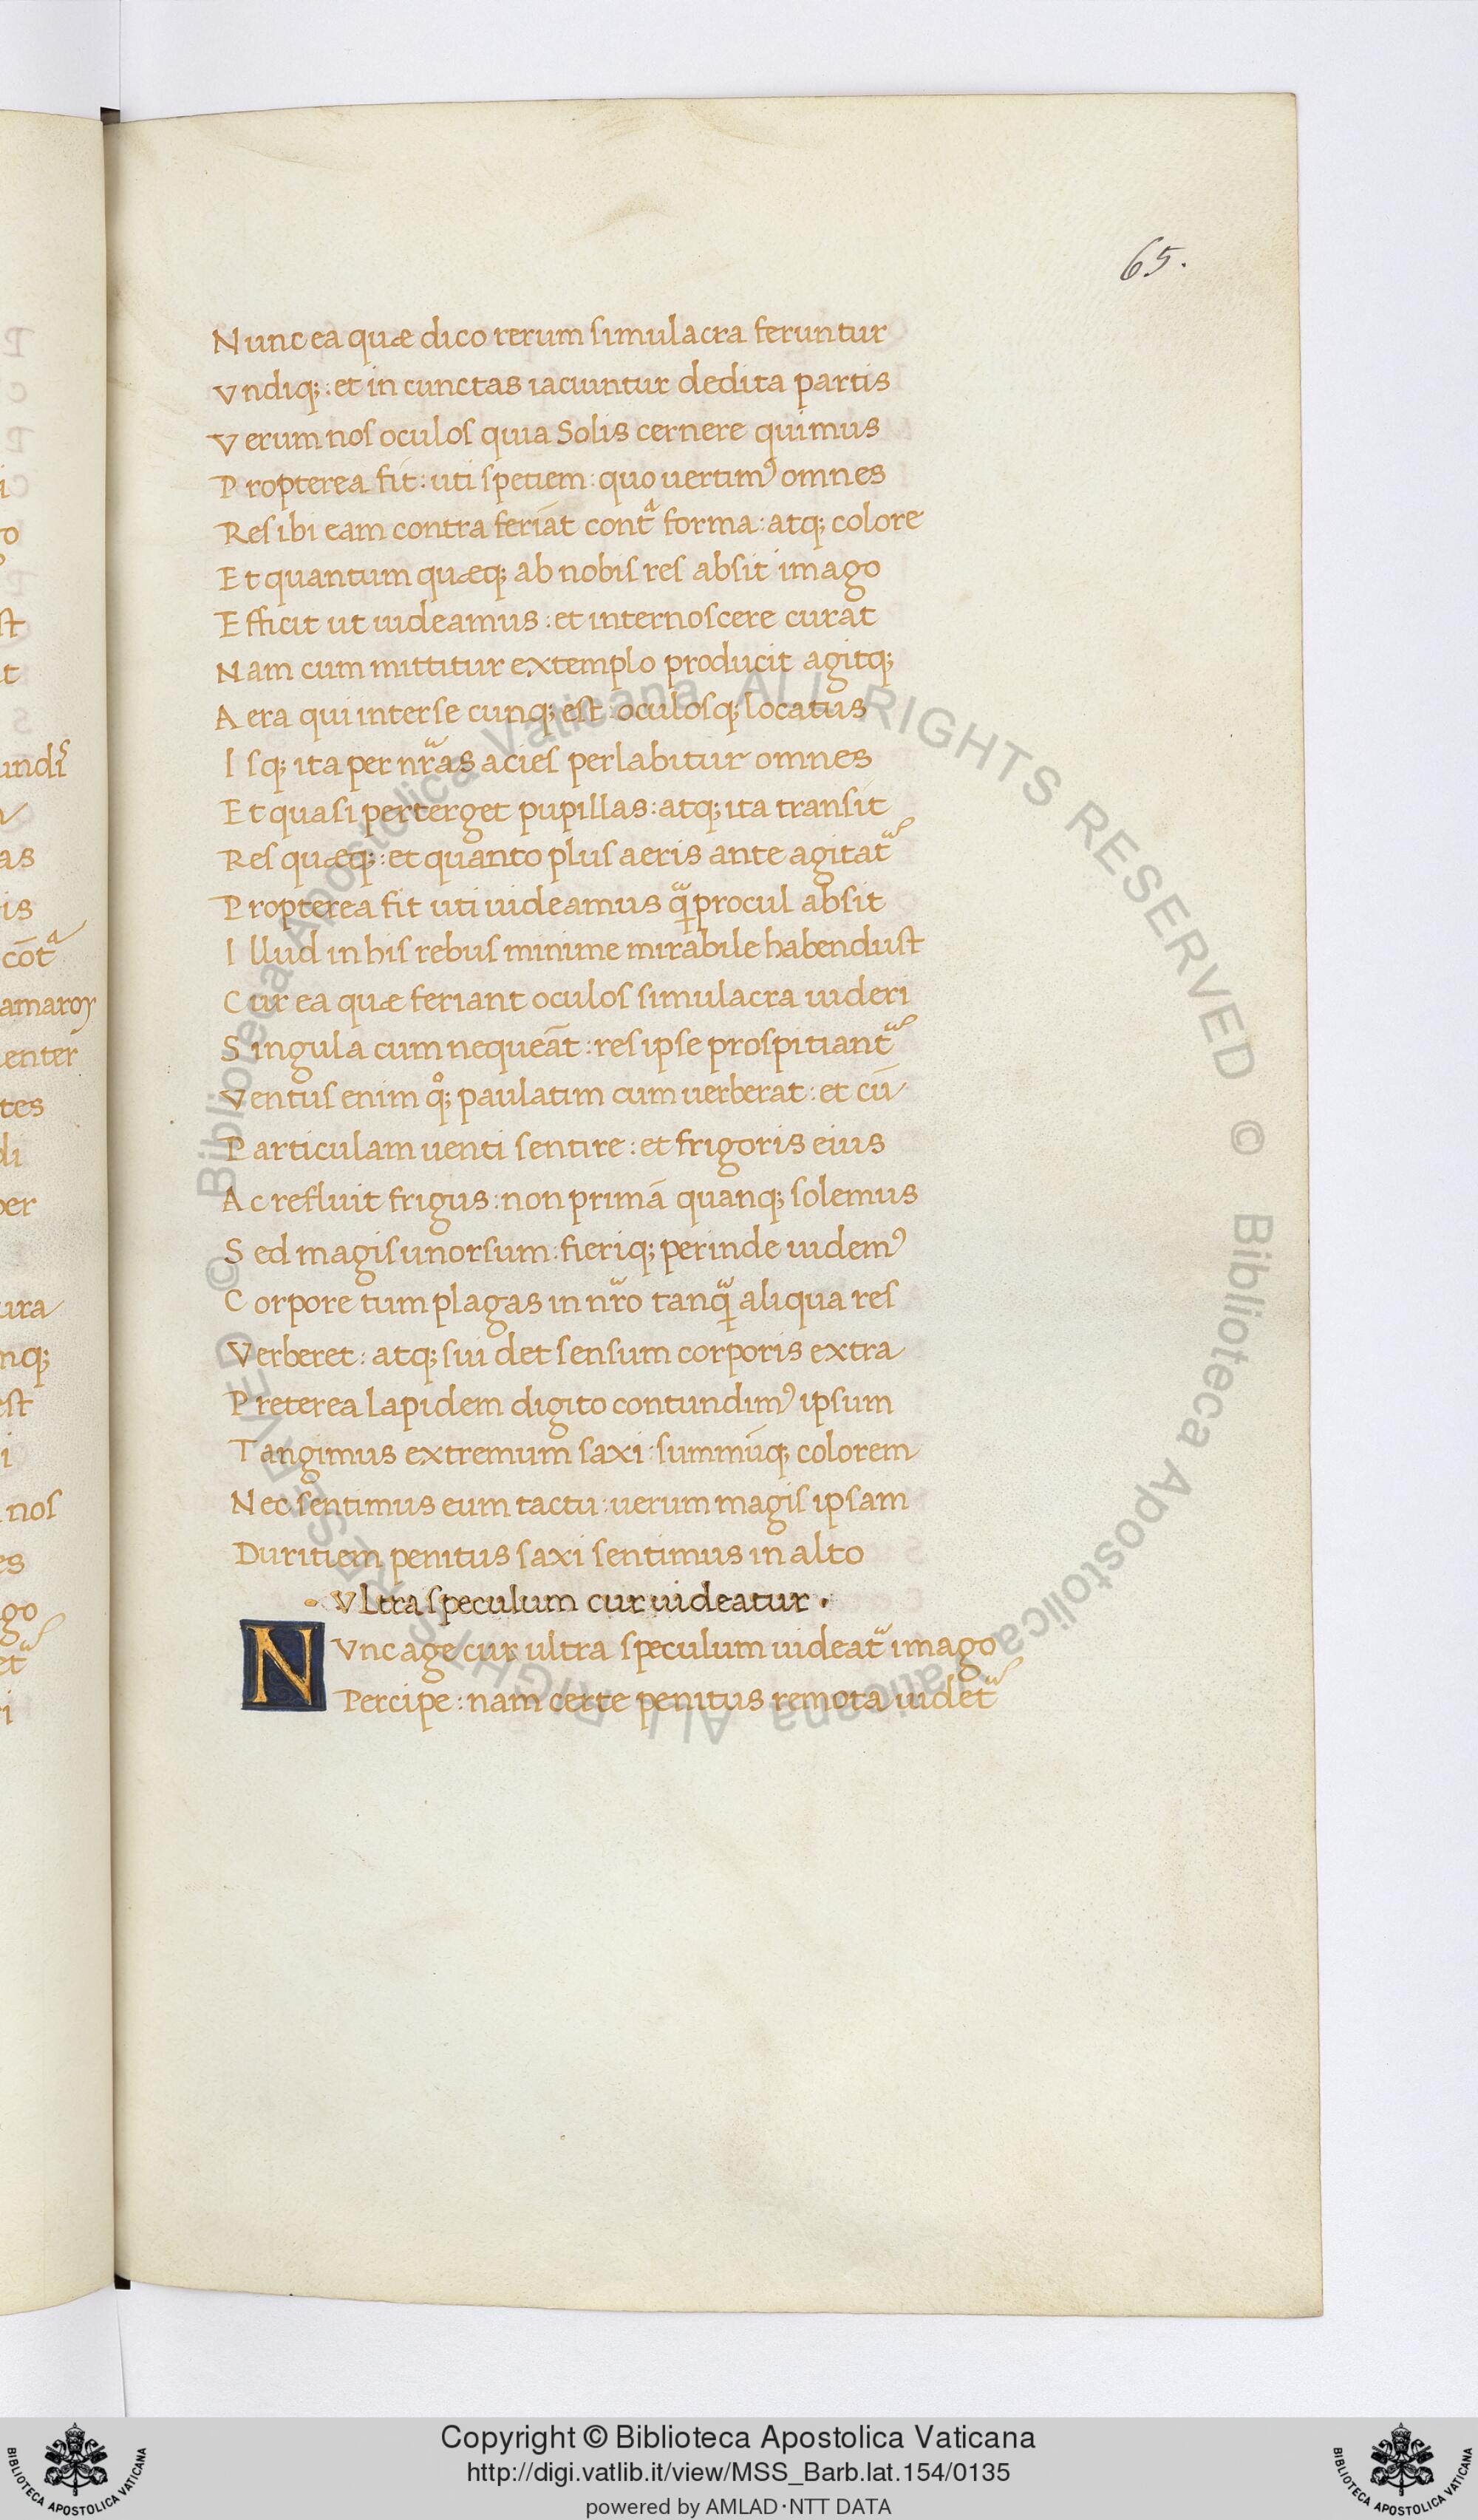 65.
Nunc ea quæ dico rerum simulacra feruntur
Vndiq; : et in cunctas iaciuntur dedita partis
Verum nos oculos quia Solis cernere quimus
Propterea fit : uti spetiem : quo uertimꝰ omnes
Res ibi eam contra feriāt contᵃ forma : atq; colore
Et quantum quæq; ab nobis res absit imago
Efficit ut uideamus : et internoscere curat
Nam cum mittitur extemplo producit agitq;
Aera qui inter se cunq; est : oculosq; locatus
Isq; ita per nr̃as acies perlabitur omnes
Et quasi perterget pupillas : atq; ita transit
Res quæq; : et quanto plus aeris ante agitat᷑
Propterea fit uti uideamus qᷓ procul absit
Illud in his rebus minime mirabile habendust
Cur ea quæ feriant oculos simulacra uideri
Singula cum nequeāt : res ipse prospitiant᷑
Ventus enim qͦ; paulatim cum uerberat : et cū
Particulam uenti sentire : et frigoris eius
Ac refluit frigus : non primā quanq; solemus
Sed magis unorsum : fieriq; perinde uidemꝰ
Corpore tum plagas in nr̃o tanqᷓ aliqua res
Verberet : atq; sui det sensum corporis extra
Preterea lapidem digito contundimꝰ ipsum
Tangimus extremum saxi : summūq; colorem
Nec sentimus eum tactu : uerum magis ipsam
Duritiem penitus saxi sentimus in alto
· Vltra speculum cur uideatur ·
NVnc age cur ultra speculum uideat᷑ imago
Percipe : nam certe penitus remota uidet᷑
© Biblioteca Apostolica Vaticana ALL RIGHTS RESERVED © Biblioteca Apostolica Vaticana ALL RIGHTS RESERVED
Copyright © Biblioteca Apostolica Vaticana
http://digi.vatlib.it/view/MSS_Barb.lat.154/0135
powered by AMLAD·NTT DATA
BIBLIOTECA APOSTOLICA VATICANA
BIBLIOTECA APOSTOLICA VATICANA